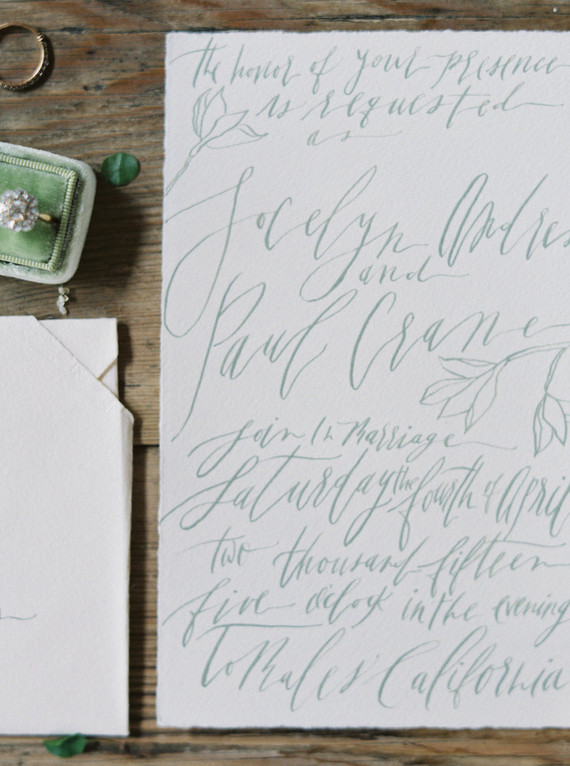 the honor of your presence
is requested
as
Jocelyn Andres
and
Paul Crane
join in marriage
Saturday the fourth of April
two thousand fifteen
five o'clock in the evening
California